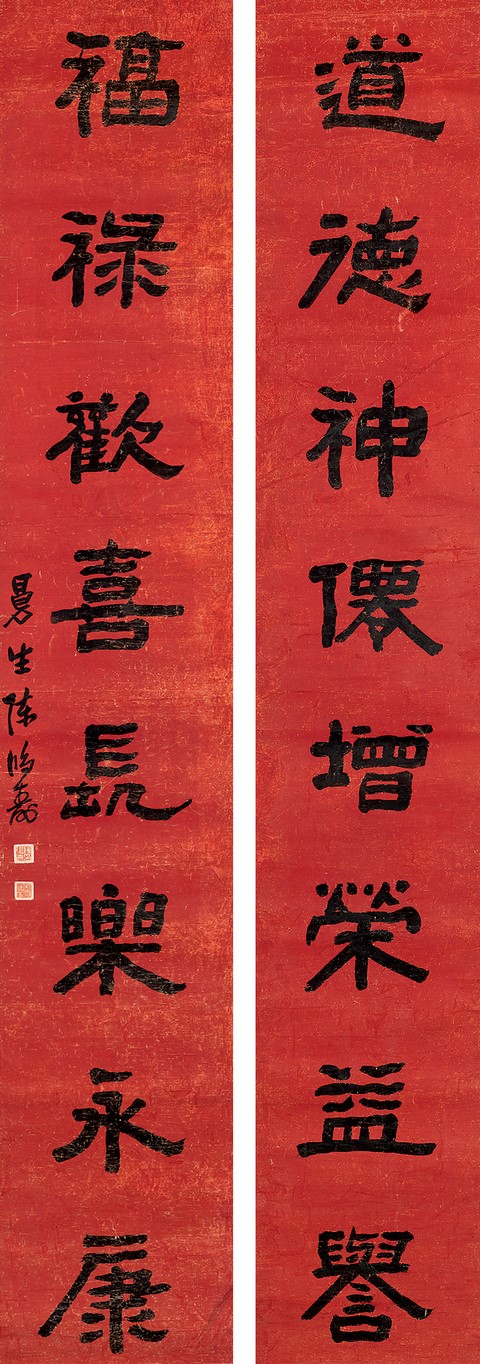 道德神僊增榮益譽
福祿歡喜長樂永康
曼生陈鴻壽